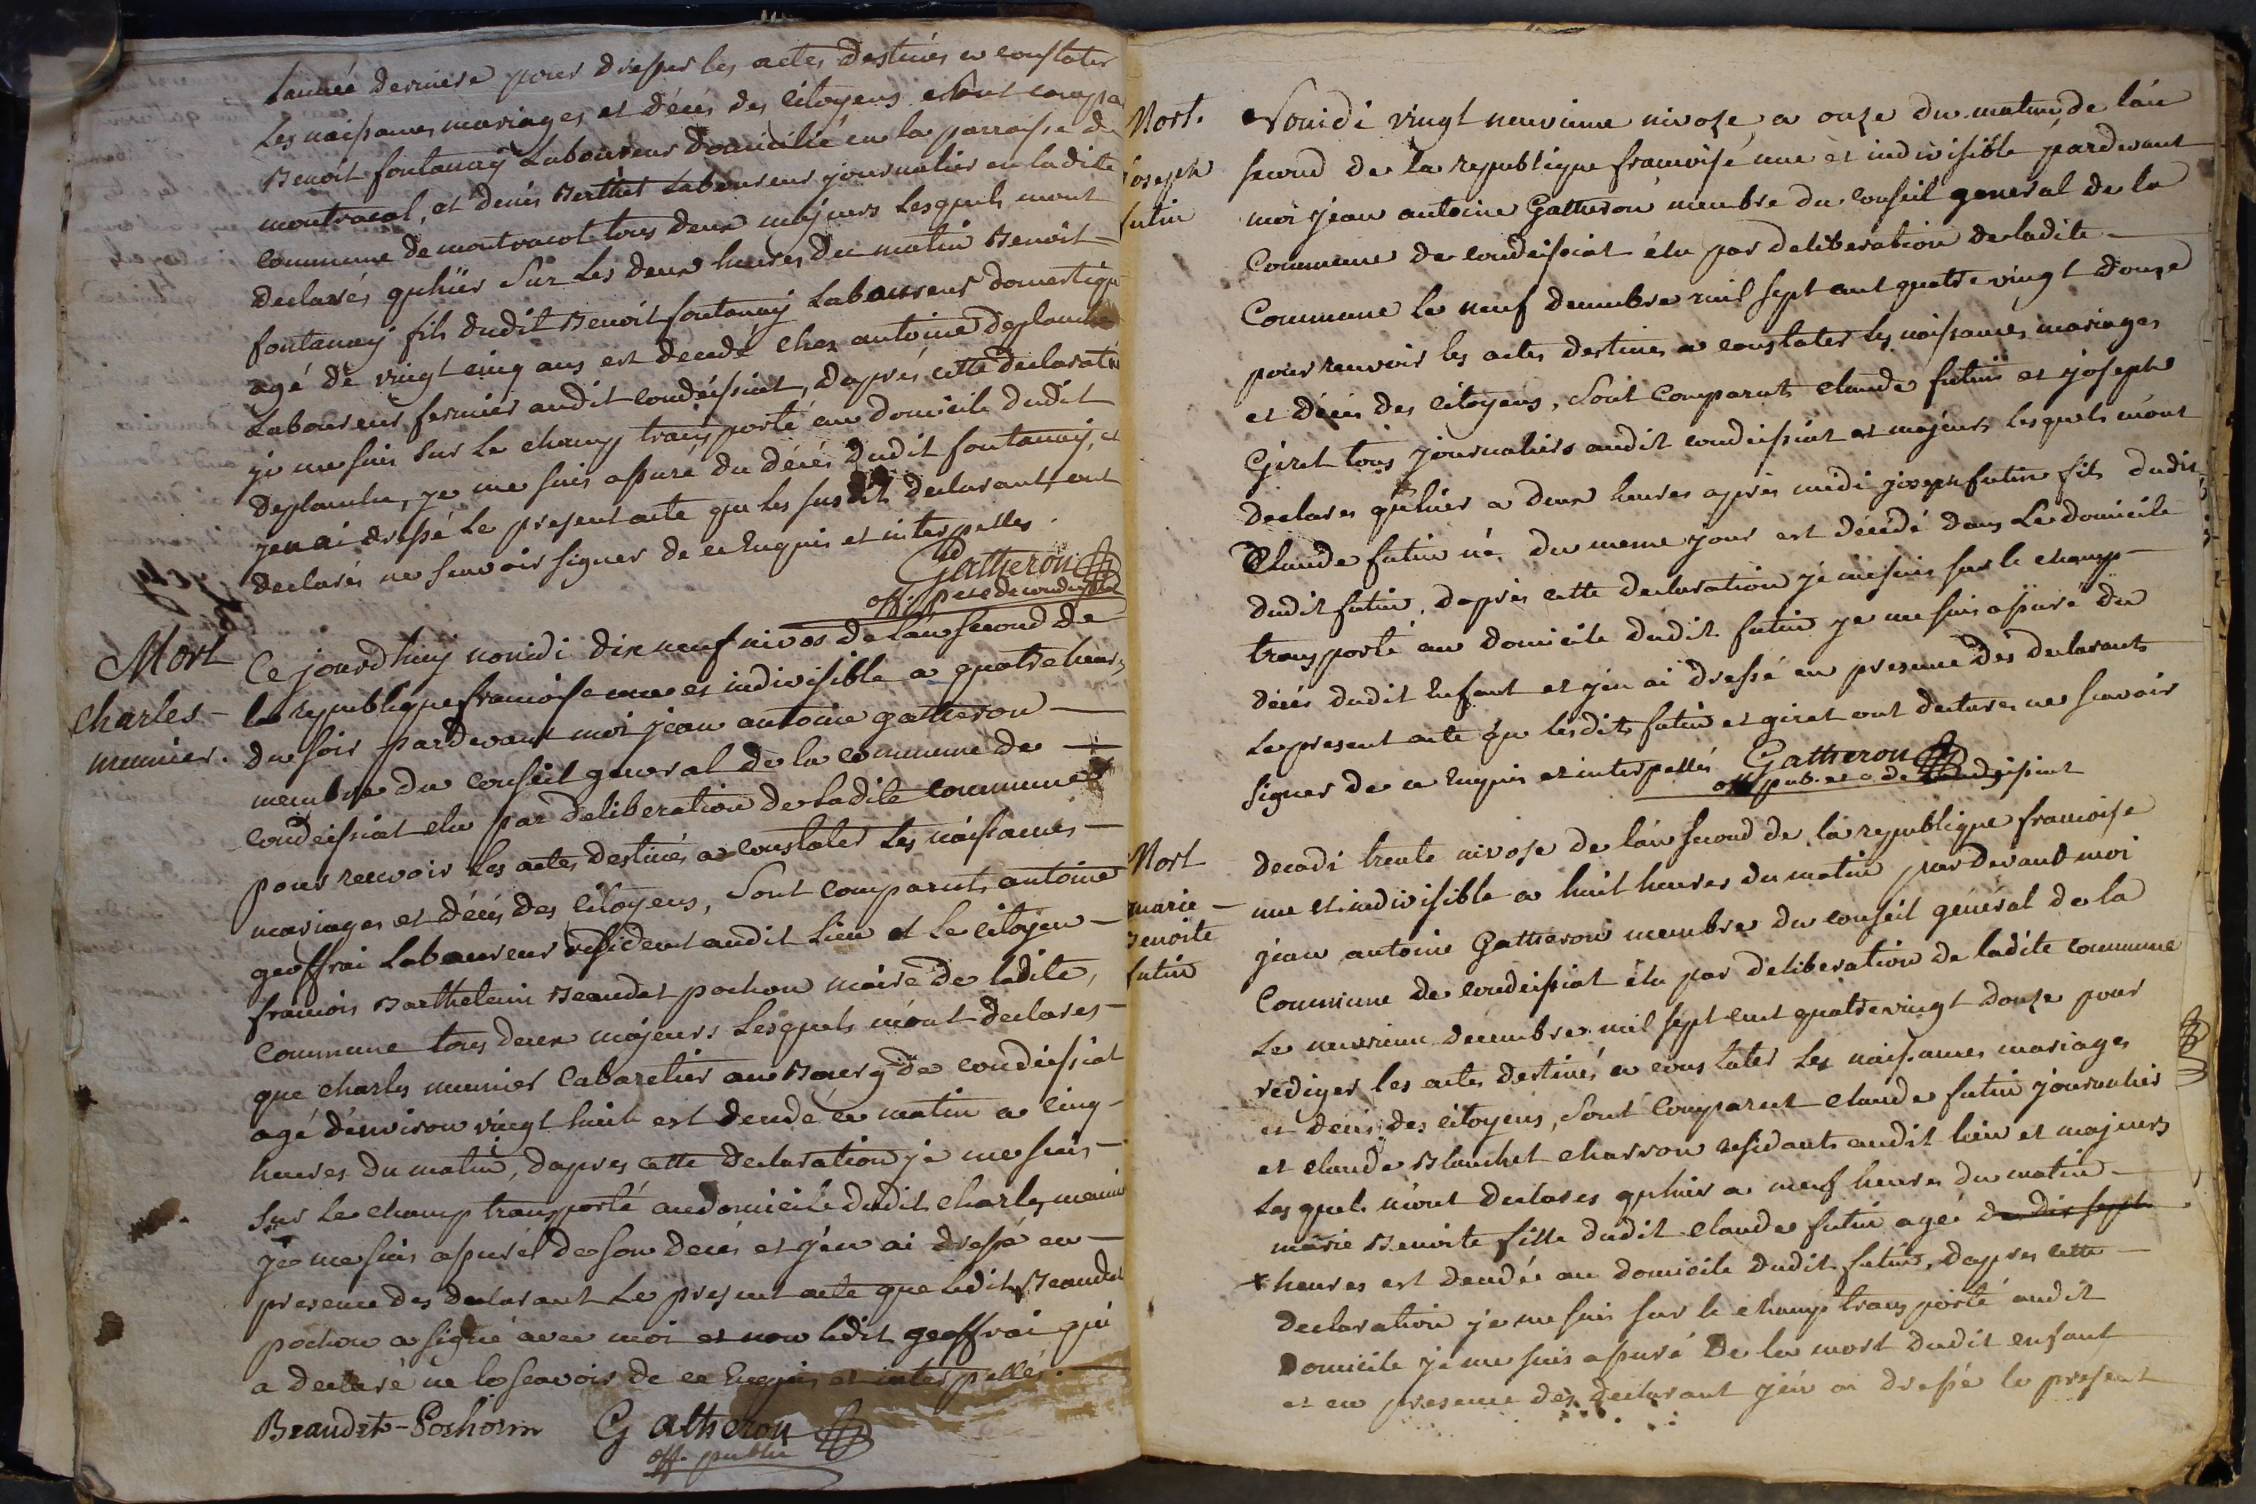 l'année derniere pour dresser les actes destinés a constater
les naissances mariages et décés des citoyens et sont compa
Benoit fontanay laboureur domicilié en la parroisse de
montracol, et denis Berthet laboureur journalier en ladite
commune de montracol tous deux majeurs lesquels mont
declarés qu'hiér sur les deux heures du matin Benoit
fontanay fils dudit Benoit fontanay laboureur domestique
agé de vingt cinq ans est decedé chez antoine deplanche
laboureur fermier audit condeissiat, d'aprés cette declaration
je me suis sur le champ transporté au domicile dudit
deplanche, je me suis assuré du décés dudit fontanay, et
j'en ai dressé le present acte que les susdit declarant ont
declarés ne scavoir signer de ce Enquis et interpelles.
Gatheron
off. pub de condeissiat
Mort
charles
munier.
Ce jourdhuy nonidi dix neuf nivos de l'an second de
la republique francoise une et indivisible a quatre heures
du soir pardevant moi jean antoine gatheron
membre du conseil general de la commune de
condeissiat elu par deliberation de ladite commune
pour recevoir les actes destinés a constater les naissances
mariages et décés des citoyens, sont comparuts antoine
geoffrai laboureur resident audit lieu et le citoyen
francois Barthelemi Beaudet pochon maire de ladite,
commune tous deux majeurs lesquels m'ont declares
que charles munier cabaretier au Bourg de condeissiat
agé d'environ vingt huit est decedé ce matin a cinq
heures du matin, d'apres cette declaration je me suis
sur le champ transporté au domicile dudit charles munier
je me suis assurés de son decés et j'en ai dressé en
presence des declarant le present acte que ledit Beaudet
pochon a signé avec moi et non ledit geoffrai qui
a declaré ne le scavoir de ce Enquis et interpellés.
Beaudet-Pochon Gatheron
off. public
Mort.
joseph
futin
Nonidi vingt neuvieme nivose a onze du matin de l'an
second de la republique francoise une et indivisible pardevant
moi jean antoine Gatheron membre du conseil general de la
Commune de condeissiat élu par deliberation de ladite
Commune le neuf decembre mil sept cent quatre vingt douze
pour recevoir les actes destinés a constater les naissances mariages
et décés des citoyens, sont comparuts claude futin et joseph
Giret tous journaliers audit condeissiat et majeurs lesquels m'ont
declares qu'hier a deux heures après midi joseph futin fils dudit
Claude futin né du meme jour est décédé dans le domicile
dudit futin, d'aprés cette declaration je me suis sur le champ
transporté au domicile dudit futin je me suis assuré du
décés dudit Enfant et j'en ai dressé en presence des declarants
le present acte que lesdits futin et giret ont declares ne scavoir
signer de ce Enquis et interpellés Gatheron
off pub. de condeissiat
Mort
marie
Benoite
futin
decadi trente nivose de l'an second de la republique francoise
une et indivisible a huit heures du matin pardevant moi
jean antoine Gatheron membre du conseil général de la
Commune de condeissiat élu par deliberation de ladite commune
le neuvieme decembre mil sept cent quatre vingt douze pour
rediger les actes destinés a constater les naissances mariages
et decés des citoyens, sont comparut claude futin journalier
et claude Blanchet charron residants audit lieu et majeurs
lesquels m'ont declares qu'hier a neuf heures du matin
marie Benoite fille dudit claude futin agé de dix sept
heures est decedée au domicile dudit futin, d'apres cette
declaration je me suis sur le champ transporté audit
domicile je me suis assuré de la mort dudit enfant
et en presence des declarant j'en ai dressé le present